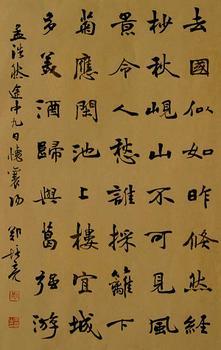 去國似如昨倏然經
杪秋峴山不可見風
景令人愁誰採籬下
菊應閒池上樓宜城
多美酒歸與葛強游
孟浩然途中九日懷襄陽 鄭培亮